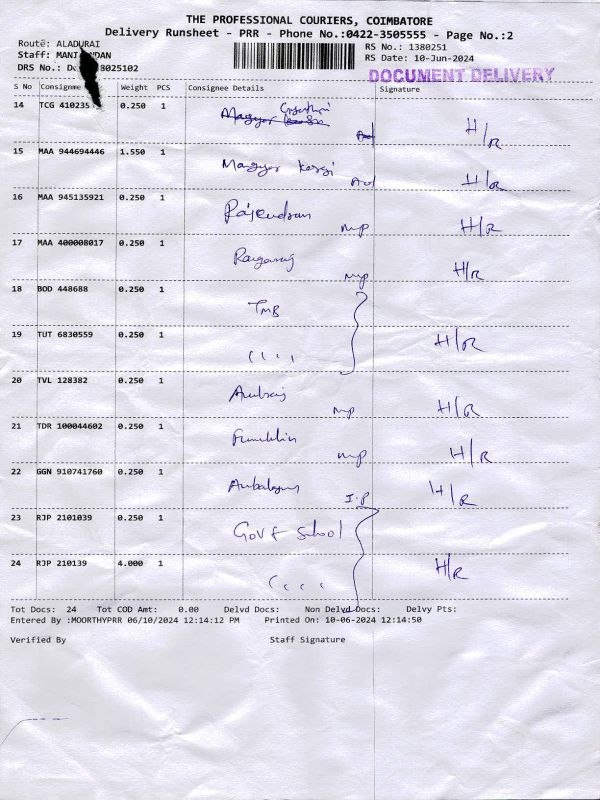 THE PROFESSIONAL COURIERS, COIMBATORE
Delivery Runsheet - PRR - Phone No.:0422-3505555 - Page No.:2
Route: ALADURAI
RS No.: 1380251
Staff:
RS Date: 10-Jun-2024
DRS No.: 8025102
DOCUMENT DELIVERY
S No Consignme Weight PCS Consignee Details Signature
14 TCG 410235 0.250 1 H/R
15 MAA 944694446 1.550 1 Magyar H/R
16 MAA 945135921 0.250 1 Rajendran mp H/R
17 MAA 400008017 0.250 1 mp H/R
18 BOD 448688 0.250 1 TMB
19 TUT 6830559 0.250 1 H/R
20 TVL 128382 0.250 1 mp H/R
21 TDR 100044602 0.250 1 mp H/R
22 GGN 910741760 0.250 1 Ambalagan J.P H/R
23 RJP 2101039 0.250 1 Govt School
24 RJP 210139 4.000 1 H/R
Tot Docs: 24 Tot COD Amt: 0.00 Delvd Docs: Non Delvd Docs: Delvy Pts:
Entered By :MOORTHYPRR 06/10/2024 12:14:12 PM Printed On: 10-06-2024 12:14:50
Verified By Staff Signature